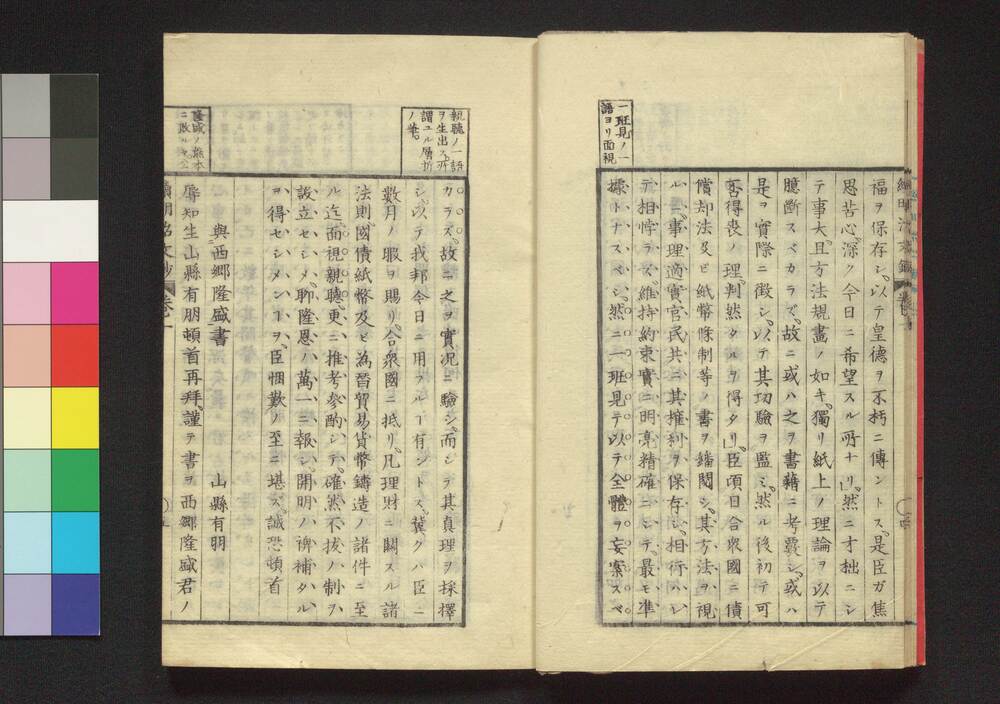 福ヲ保存シ、以テ皇德ヲ不朽ニ傳ントス、是臣ガ焦
思苦心、深ク今日ニ希望スル所ナリ、然ニ才拙ニシ
テ事大、且方法規畫ノ如キ、獨リ紙上ノ理論ヲ以テ
臆斷スベカラズ、故ニ或ハ之ヲ書藉ニ考覈シ、或ハ
是ヲ實際ニ徵シ、以テ其功驗ヲ監ミ、然ル後初テ可
否得喪ノ理、判然タルヲ得タリ、臣項日合衆國ニ債
償却法及ビ紙幣條制等ノ書ヲ繙閱シ、其方法ヲ視
ル二、事理適實官民共ニ其權利ヲ保存シ、相行ハレ
テ相悖ラズ、維持約束實ニ明亮精確ニシテ、最モ準
據トナスベシ、然ニ一班見テ以テ全體ヲ妄案スベ
一班見ノ一
語ヨリ面視
親聽ノ一語
ヲ生出ス、所
謂ユル層折
ノ筆。
カラズ、故ニ之ヲ實况ニ驗シ、而シテ其真理ヲ採擇
シ、以テ我邦今日ニ用フルヿ有ントス、冀クハ臣ニ
數月ノ暇ヲ賜リ、合衆國ニ抵リ、凡理財ニ關スル諸
法則、國債紙幣及ビ為替貿易貨幣鑄造ノ諸件ニ至
ル迄、面視親聽、更ニ推考參酌シテ、確然不拔ノ制ヲ
設立セシメ、聊隆恩ハ萬一ニ報シ、開明ハ裨補タル
ヲ得セシメンヿヲ、臣悃歎ノ至ニ堪ズ、誠恐頓首
與西鄉隆盛書 山縣有朋
辱知生山縣有朋頓首再拜、謹テ書ヲ西鄉隆盛君ノ
隆盛ノ熊本